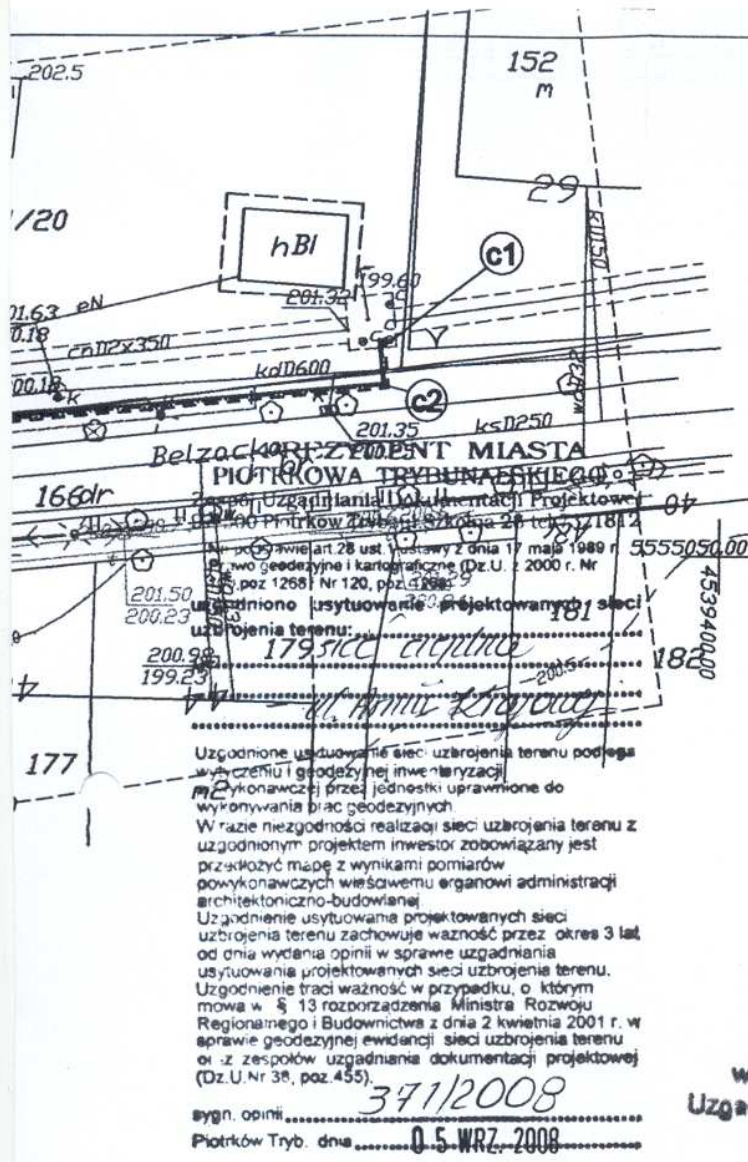 202.5
152
m
29
/20
hBl
kD150
c1
199.60
201.32
01.63
eN
0.18
cnD2x350
kdD600
00.18
k
c2
201.35
ksD250
PREZYDENT MIASTA
PIOTRKOWA TRYBUNALSKIEGO
166dr
Zespół Uzgadniania Dokumentacji Projektowej
Na podstawie art. 28 ust. 1 ustawy z dnia 17 maja 1989 r.
5555050.00
Prawo geodezyjne i kartograficzne (Dz.U. z 2000 r. Nr
poz 1268 Nr 120, poz. 1268)
4539400.00
201.50
200.23
uzgodniono usytuowanie projektowanych sieci
uzbrojenia terenu:
181
179 sieć cieplna
200.98
199.23
200.5
182
ul. Armii Krajowej
177
Uzgodnione usytuowanie sieci uzbrojenia terenu podlega
wytyczeniu i geodezyjnej inwenteryzacji
powykonawczej przez jednostki uprawnione do
wykonywania prac geodezyjnych
W razie niezgodności realizacji sieci uzbrojenia terenu z
uzgodnionym projektem inwestor zobowiązany jest
przedłożyć mapę z wynikami pomiarów
powykonawczych właściwemu organowi administracji
architektoniczno-budowlanej
Uzgodnienie usytuowania projektowanych sieci
uzbrojenia terenu zachowuje ważność przez okres 3 lat
od dnia wydania opinii w sprawie uzgadniania
usytuowania projektowanych sieci uzbrojenia terenu.
Uzgodnienie traci ważność w przypadku, o którym
mowa w § 13 rozporządzenia Ministra Rozwoju
Regionalnego i Budownictwa z dnia 2 kwietnia 2001 r. w
sprawie geodezyjnej ewidencji sieci uzbrojenia terenu
oraz zespołów uzgadniania dokumentacji projektowej
(Dz.U.Nr 38, poz.455).
w
Uzga
sygn. opinii 371/2008
Piotrków Tryb. dnia 05 WRZ. 2008